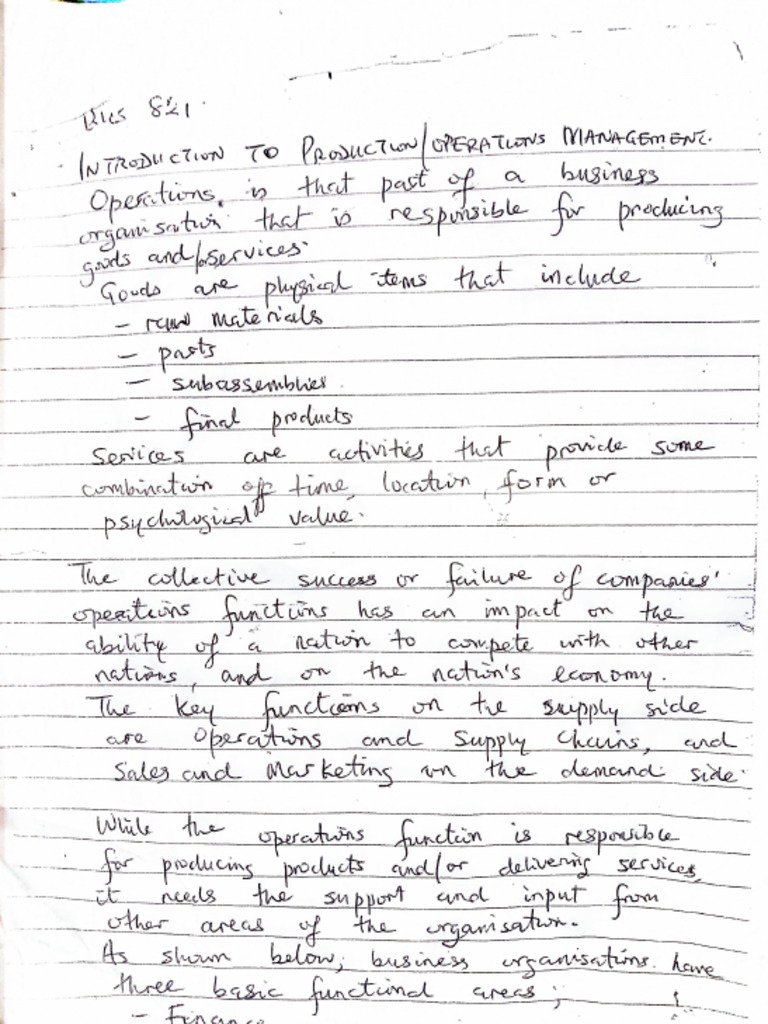 821.
INTRODUCTION TO PRODUCTION/OPERATIONS MANAGEMENT.
Operations, is that part of a business
organisation that is responsible for producing
goods and/services.
Goods are physical items that include
- raw materials
- parts
- subassemblies.
- final products
Services are activities that provide some
combination of time, location, form or
psychological value.
The collective success or failure of companies'
operations functions has an impact on the
ability of a nation to compete with other
nations, and on the nation's economy.
The key functions on the supply side
are operations and supply chains, and
Sales and Marketing on the demand side.
While the operations function is responsible
for producing products and/or delivering services,
it needs the support and input from
other areas of the organisation.
As shown below, business organisations have
three basic functional areas;
- Finance